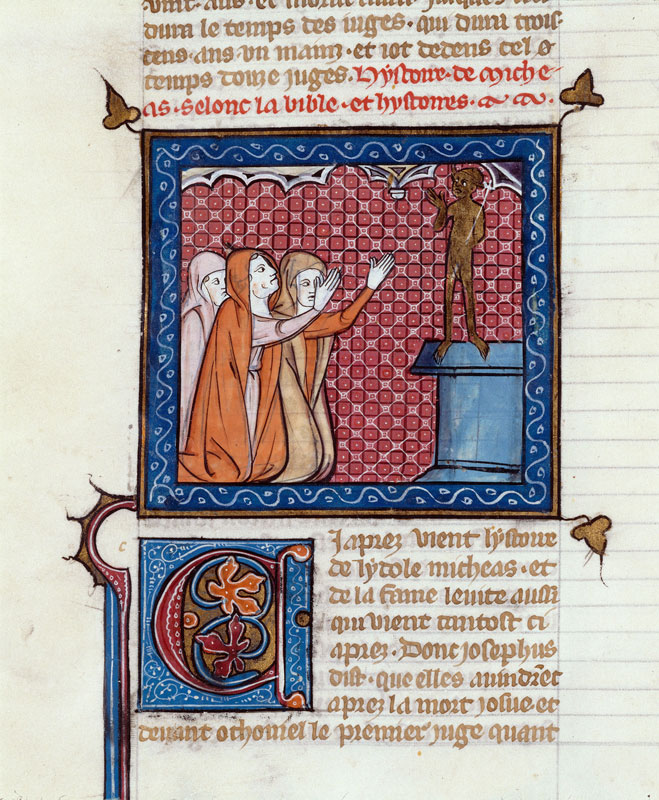 durā le temps des iuges · qui dura trois
cens · ans · vn mainz · et iot dedens cel
temps douze iuges · hystoire · de miche-
as · selonc la bible · et hystoires ·
c
C
Iaprez vient hystoire
de lydole micheas · et
de la fame leuite aussi
qui vient tantost ci
aprez · Dont iosephus
dist · que elles auindrēt
aprez la mort iosue et
deuant othoniel le premier iuge quant